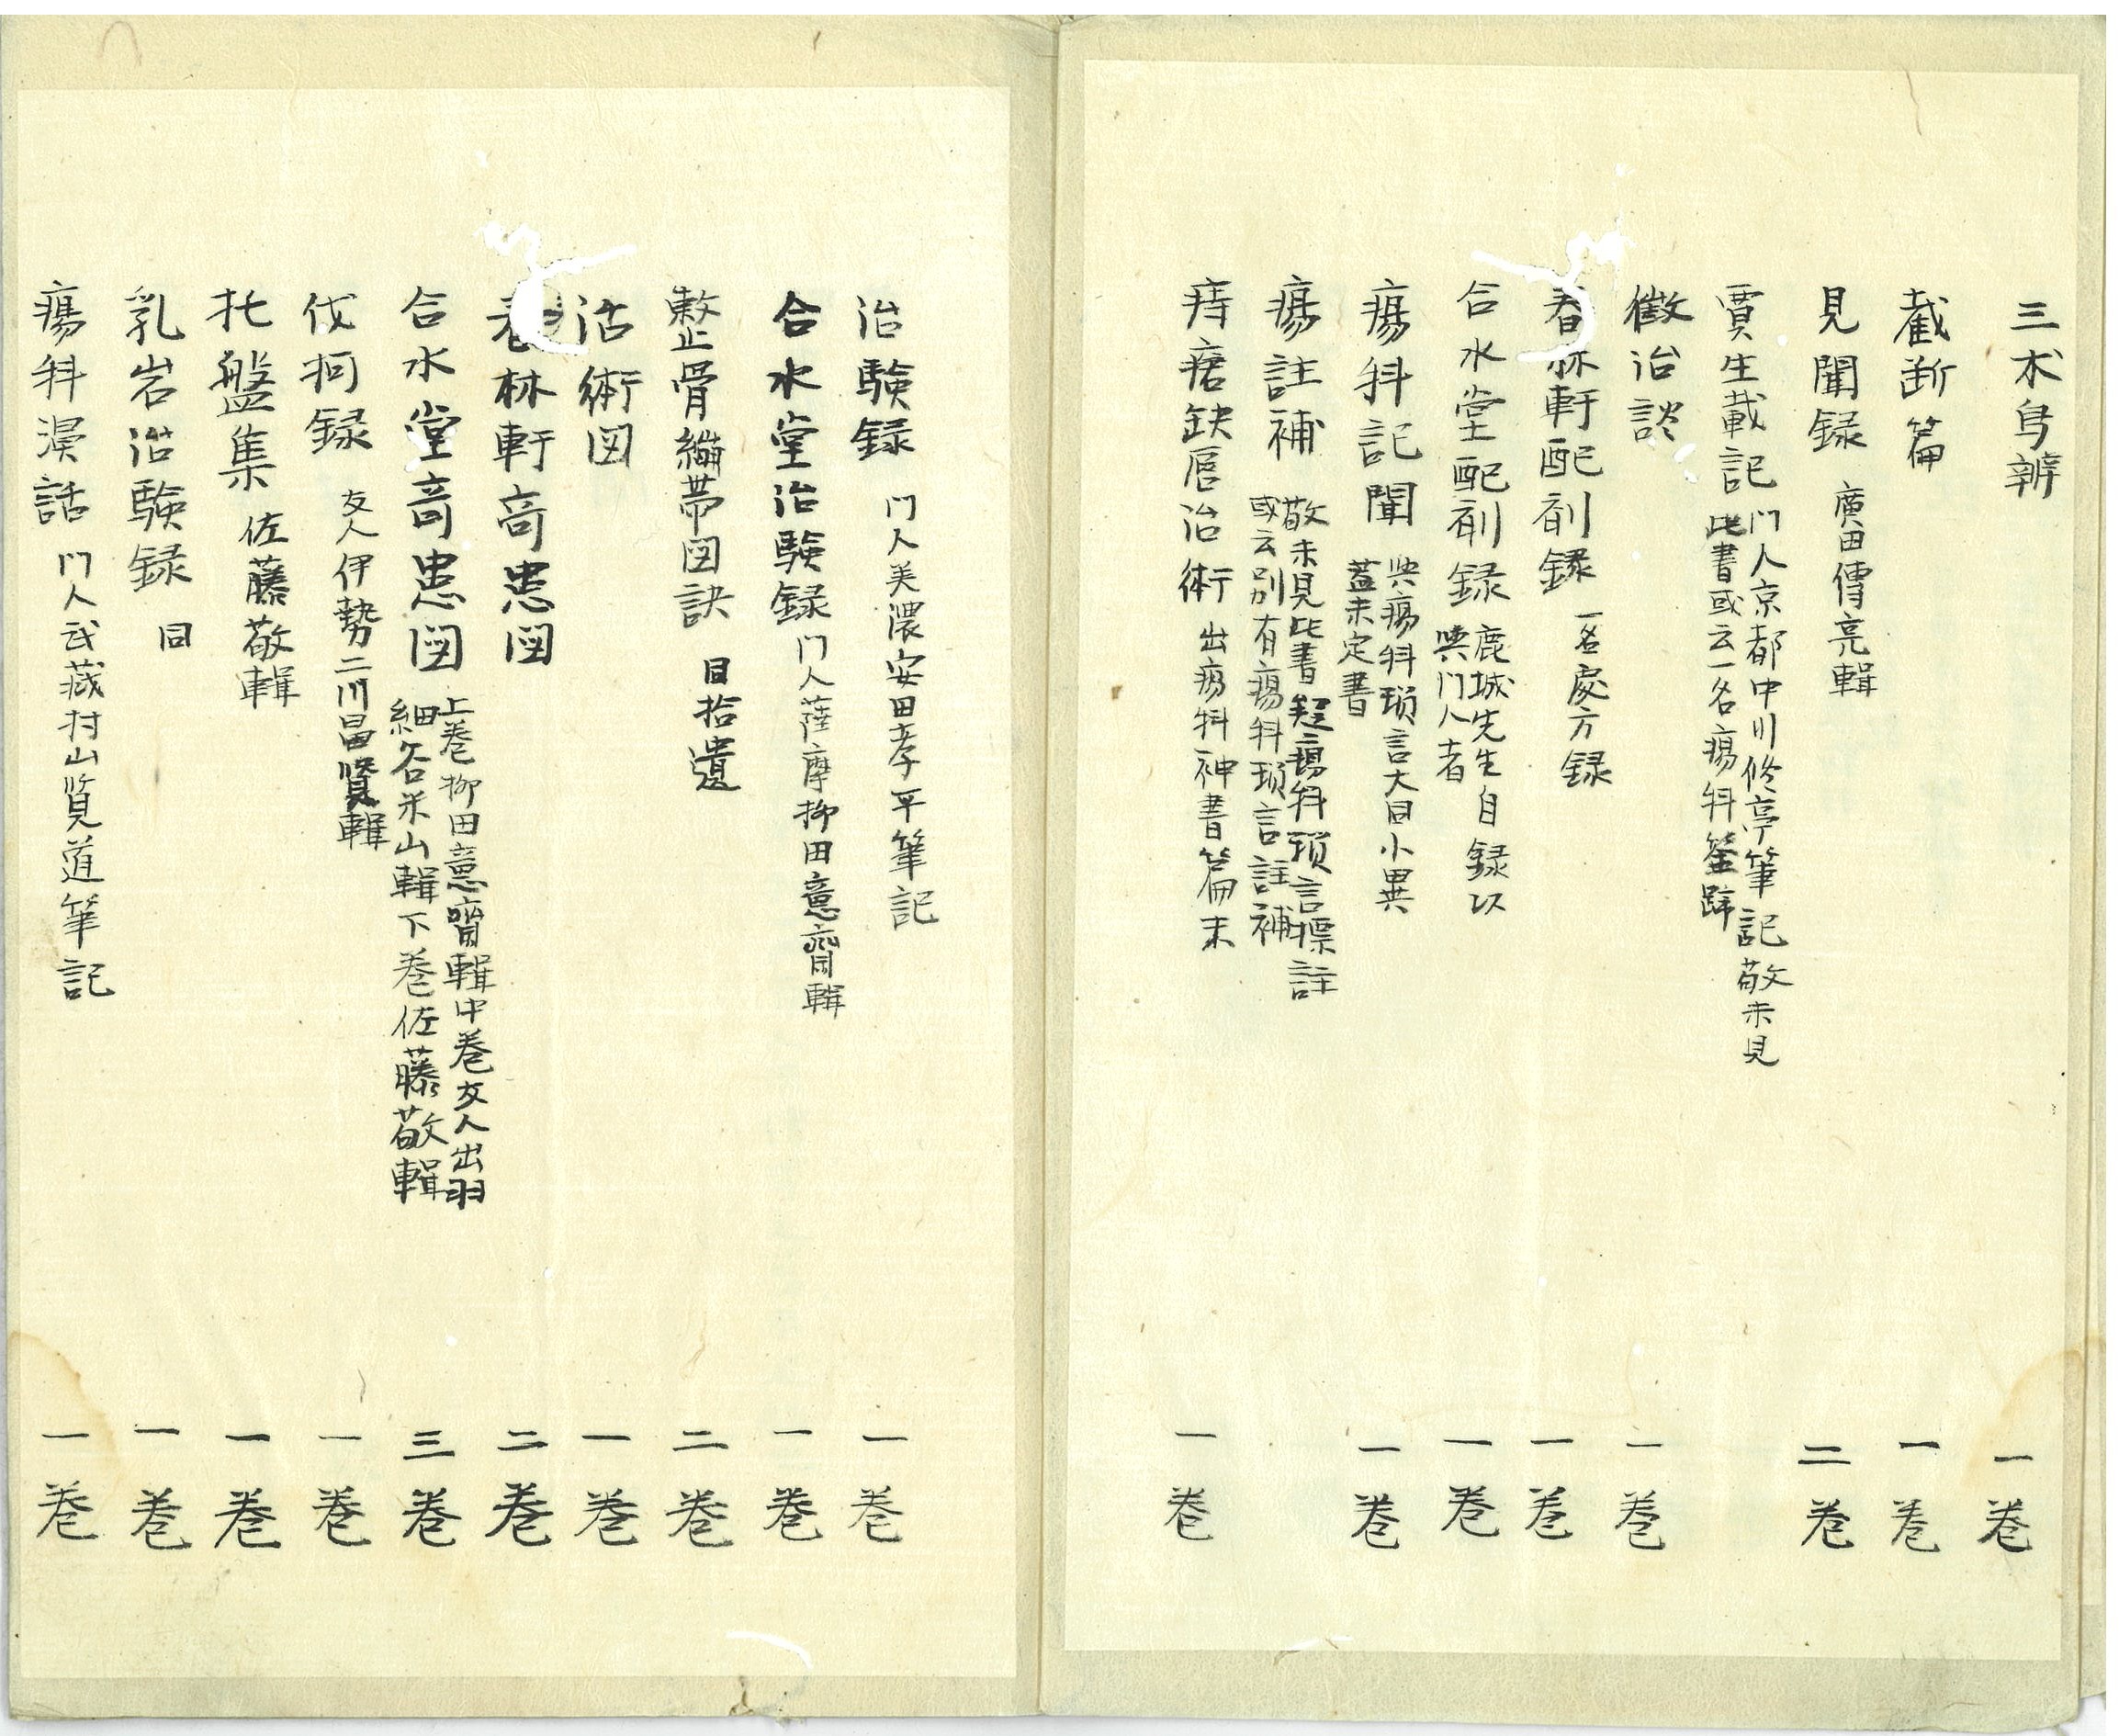 三木烏辨 一巻
截断篇 一巻
見聞録 廣田傳亮輯 二巻
賈生載記 門人京都中川修亭筆記敬未見
此書或云一名瘍科筌蹄
徴治談 一巻
春林軒配剤録 一名處方録 一巻
合水堂配剤録 鹿城先生自録以
與門人者 一巻
瘍科記聞 與瘍科瑣言大同小異
蓋未定書 一巻
瘍註補 敬未見此書疑瘍科瑣言標註
或云別有瘍科瑣言註補
痔瘻缺唇治術 出瘍科神書篇末 一巻
治験録 門人美濃安田孝平筆記 一巻
合水堂治験録 門人薩摩柳田意齋輯 一巻
整骨繃帯図訣 同拾遺 二巻
治術図 一巻
春林軒奇患図 二巻
合水堂奇患図 上巻柳田意齋輯中巻友人出羽
細谷米山輯下巻佐藤敬輯 三巻
伐柯録 友人伊勢二川昌賢輯 一巻
托盤集 佐藤敬輯 一巻
乳岩治験録 同 一巻
瘍科漫話 門人武蔵村山覧道筆記 一巻